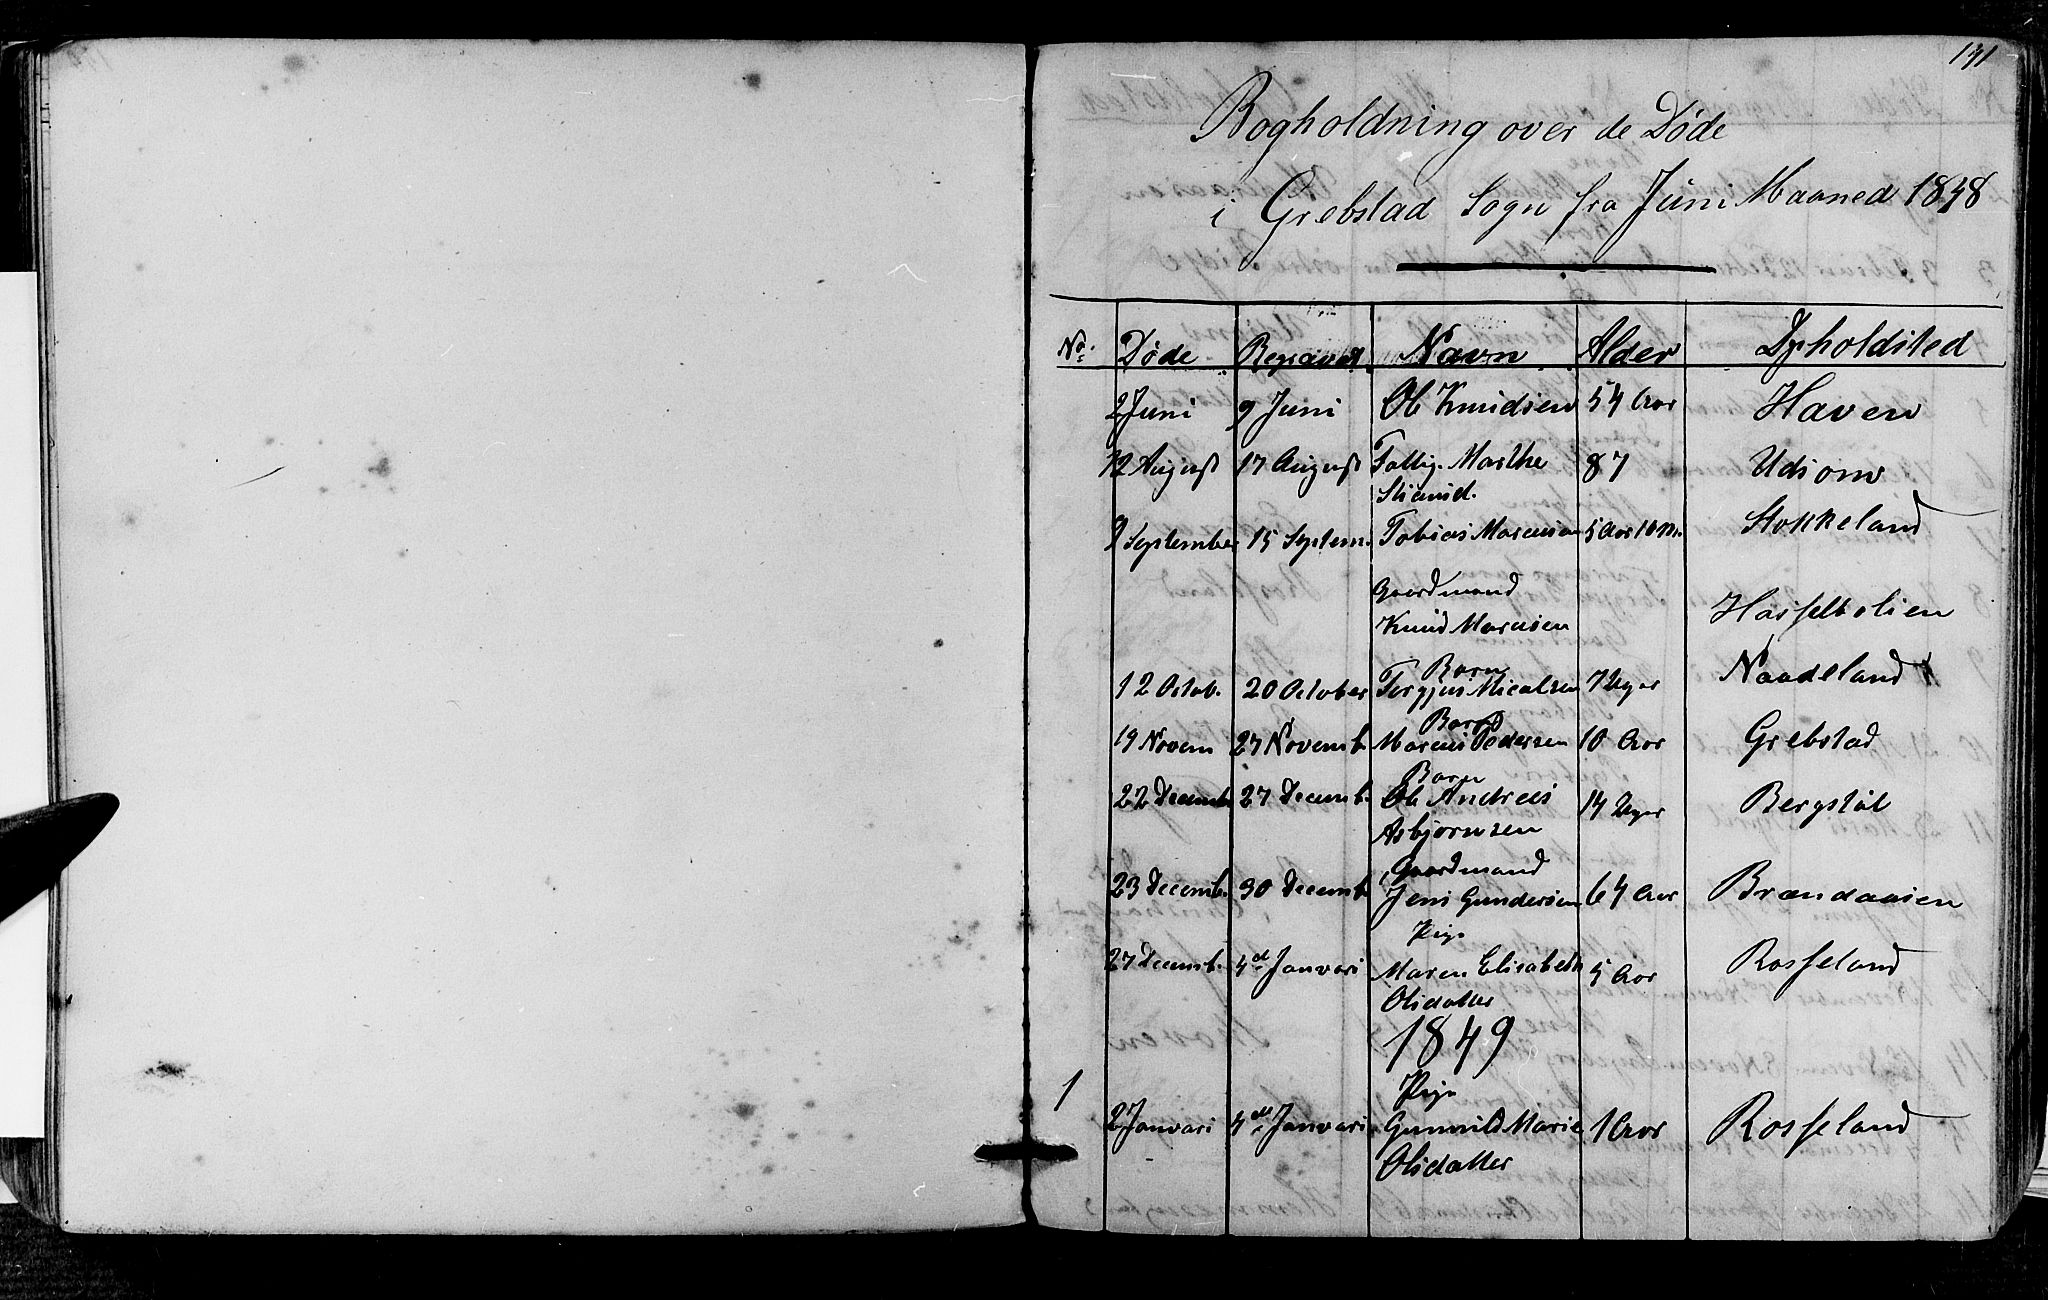 191
Bogholdning over de Døde
i Grebstad Sogn fra Juni Maaned 1848
No. Døde Begravet Navn Alder Opholdsted
2 Juni 9 Juni Ole Knudsen 54 Aar Haven
12 August 17 August Fattig. Marthe 87 Udsom
9 September 15 Septem. Tobias Marcusen 5 Aar 10 M. Stokkeland
Gaardmand
Knud Marcusen Hasseltolien
Barn
12 Octob. 20 October Torgjus Nicalsen 7 Uger Naadeland
Barn
19 Novem 27 Novemb. Marcus Pedersen 10 Aar Grebstad
Barn
22 Decemb. 27 Decemb. Ole Andreas 14 Uger Bergstøl
Asbjørnsen
Gaardmand
23 Decemb. 30 Decemb. Jens Gundersen 64 Aar Brændaasen
Pige
27 Decemb. 4de Januari Maren Elisabeth 5 Aar Rosseland
Olsdatter
1849
Pige
1 2 Januari 4de Januari Gunnild Marie 1 Aar Rosseland
Olsdatter